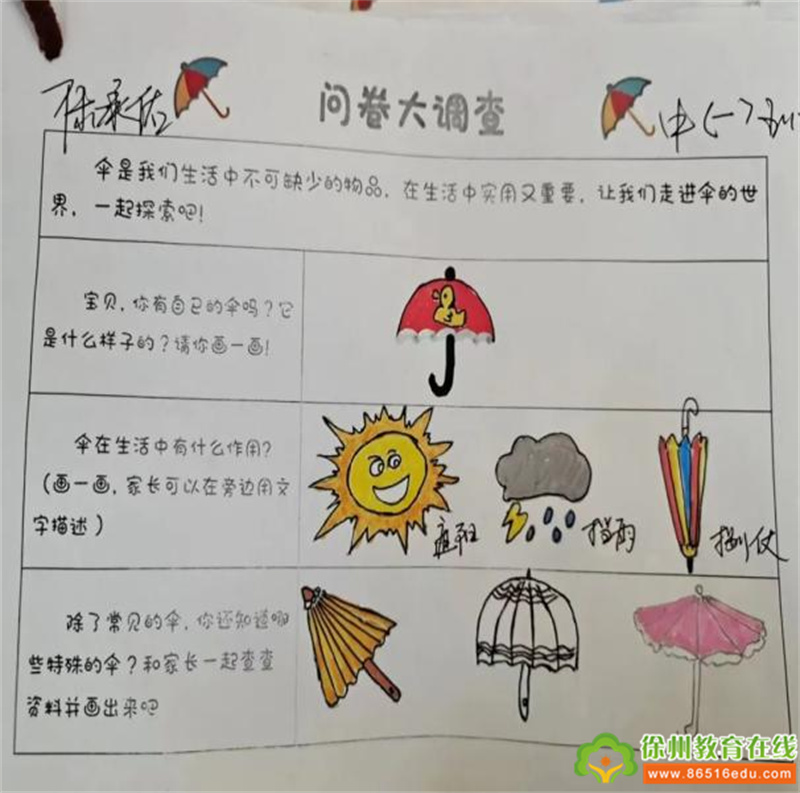 问卷大调查
陈承佑
伞是我们生活中不可缺少的物品，在生活中实用又重要，让我们走进伞的世
界，一起探索吧！
宝贝，你有自己的伞吗？它
是什么样子的？请你画一画！
伞在生活中有什么作用？
（画一画，家长可以在旁边用文
字描述）
遮阳
挡雨
除了常见的伞，你还知道哪
些特殊的伞？和家长一起查查
资料并画出来吧
徐州教育在线
www.86516edu.com